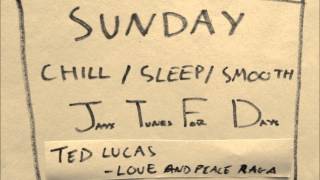 SUNDAY
CHILL / SLEEP / SMOOTH
JAMS TUNES FOR DAYS
TED LUCAS
- LOVE AND PEACE RAGA